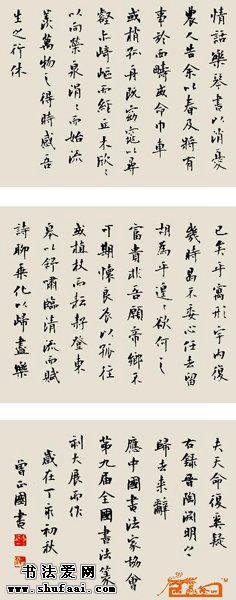 情話樂琴書以消憂
農人告余以春及將有
事於西疇或命巾車
或棹孤舟既窈窕以尋
壑亦崎嶇而經丘木欣欣
以向榮泉涓涓而始流
羨萬物之得時感吾
生之行休
已矣乎寓形宇内復
幾時曷不委心任去留
胡為乎遑遑欲何之
富貴非吾願帝鄉不
可期懷良辰以孤往
或植杖而耘耔登東
皋以舒嘯臨清流而賦
詩聊乘化以歸盡樂
夫天命復奚疑
右録晉陶淵明之
歸去來辭
應中國書法家協會
第九届全國書法篆
刻大展而作
歲在丁亥初秋
曾正國書
书法爱网
www.shufaai.com